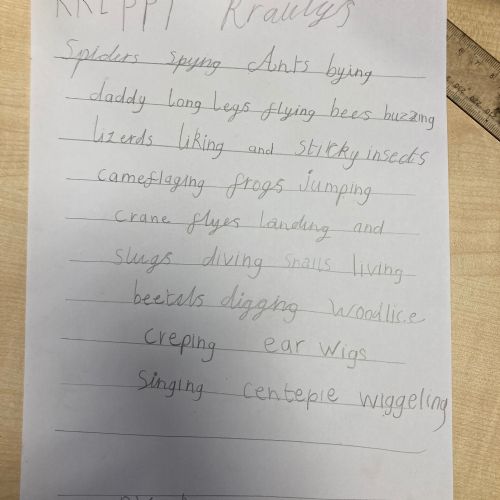 Krawlys
Spiders spying Ants bying
daddy long legs flying bees buzzing
lizerds liking and sticky insects
cameflaging frogs jumping
crane flyes landing and
slugs diving snails living
beetals digging woodlice
creping ear wigs
singing centepie wiggeling